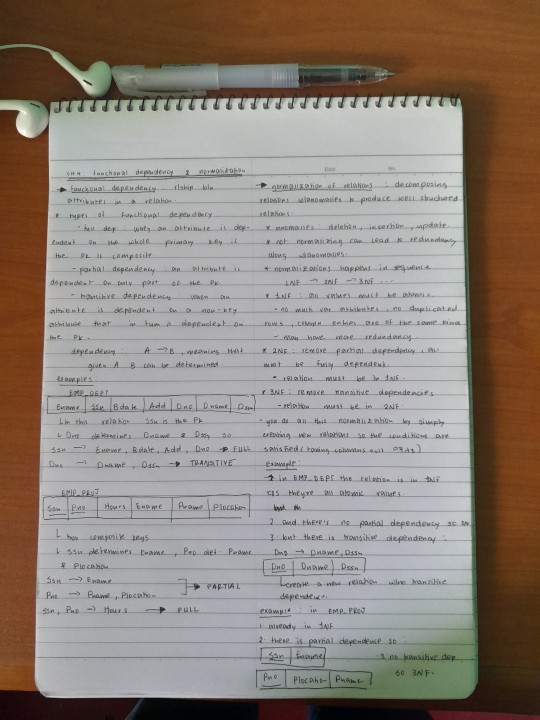 CH4 functional dependency & normalization
→ functional dependency rlship b/n
attributes in a relation.
* types of functional dependency
- full dep when an attribute is dep-
endent on the whole primary key if
the PK is composite
- partial dependency an attribute is
dependent on only part of the PK
- transitive dependency when an
attribute is dependent on a non-key
attribute that in turn is dependent on
the PK.
dependency A → B, meaning that
given A B can be determined
examples:
EMP_DEPT
Ename Ssn Bdate Add Dno Dname Dssn
in this relation Ssn is the PK
↳ Dno determines Dname & Dssn so
Ssn → Ename, Bdate, Add, Dno → FULL
Dno → Dname, Dssn → TRANSITIVE
EMP_PROJ
Ssn Pno Hours Ename Pname Plocation
↳ has composite keys
↳ SSN determines Ename, Pno det Pname
& Plocation
Ssn → Ename
Pno → Pname, Plocation
→ PARTIAL
Ssn, Pno → Hours → FULL
Date No
→ normalization of relations : decomposing
relations w/anomalies to produce well structured
relations
* anomalies deletion, insertion, update
* not normalizing can lead to redundancy
along w/anomalies.
* normalizations happens in sequence
1NF → 2NF → 3NF ...
* 1NF : all values must be atomic.
- no mult var attributes, no duplicated
rows, column entries are of the same
- may have more redundancy
* 2NF : remove partial dependency, all
must be fully dependent.
- relation must be in 1NF.
* 3NF : remove transitive dependencies
- relation must be in 2NF
- you do all this normalization by simply
creating new relations so the conditions are
satisfied (having columns
example:
1 in EMP_DEPT the relation is in 1NF
they're all atomic values.
2. and there's no partial dependency so
3. but there is transitive dependency :
Dno → Dname, Dssn
Dno Dname Dssn
↳ create a new relation w/no transitive
dependency.
example : in EMP_PROJ
1. already in 1NF
2. there is partial dependence so
Ssn Ename
3 no transitive dep
so 3NF.
Pno Plocation Pname